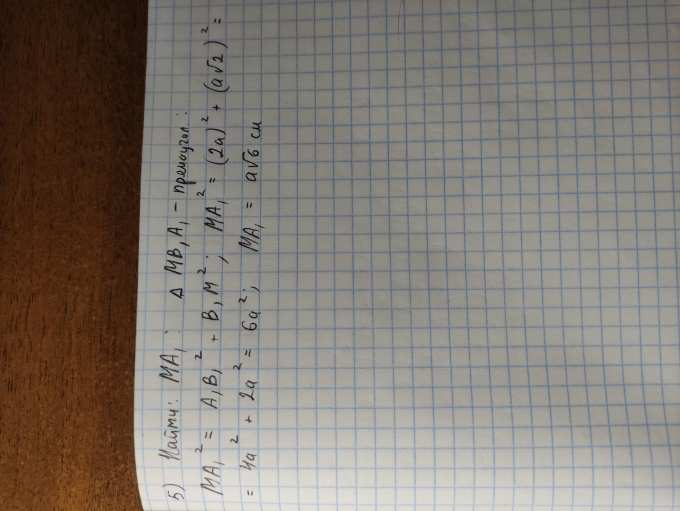 5) Найти: MA₁: Δ MB₁A₁ – прямоугол.:
MA₁² = A₁B₁² + B₁M²; MA₁² = (2a)² + (a√2)² =
= 4a² + 2a² = 6a²; MA₁ = a√6 см